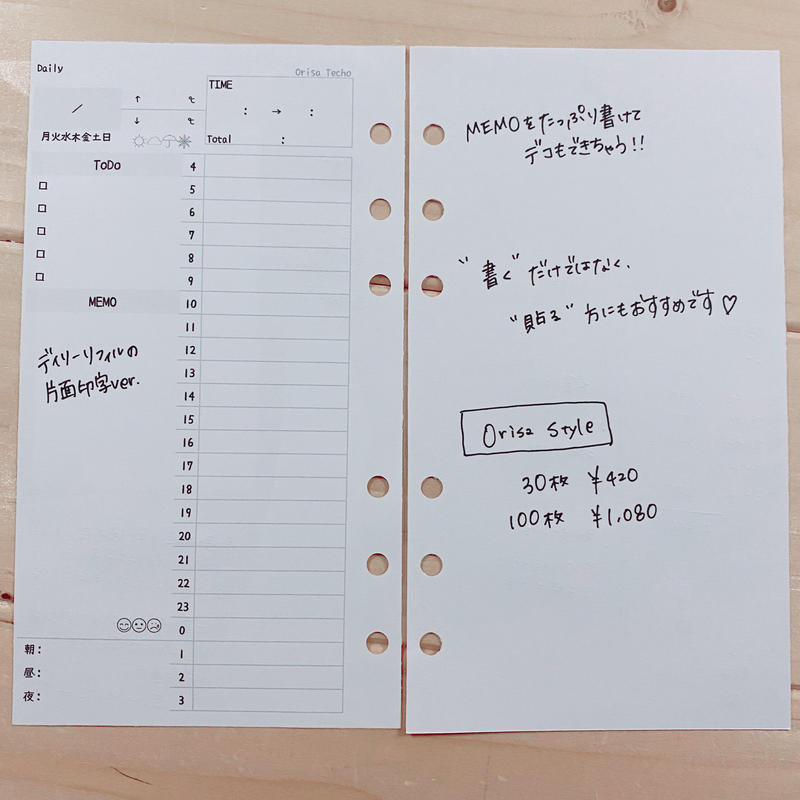 Daily
Orisa Techo
/
↑ ℃
↓ ℃
月火水木金土日
TIME
: → :
Total :
ToDo
MEMO
ディリーリフィルの
片面印字ver.
4
5
6
7
8
9
10
11
12
13
14
15
16
17
18
19
20
21
22
23
0
1
2
3
朝:
昼:
夜:
MEMOをたっぷり書けて
デコもできちゃう!!
"書く"だけではなく、
"貼る"方にもおすすめです♡
Orisa Style
30枚 ¥420
100枚 ¥1,080